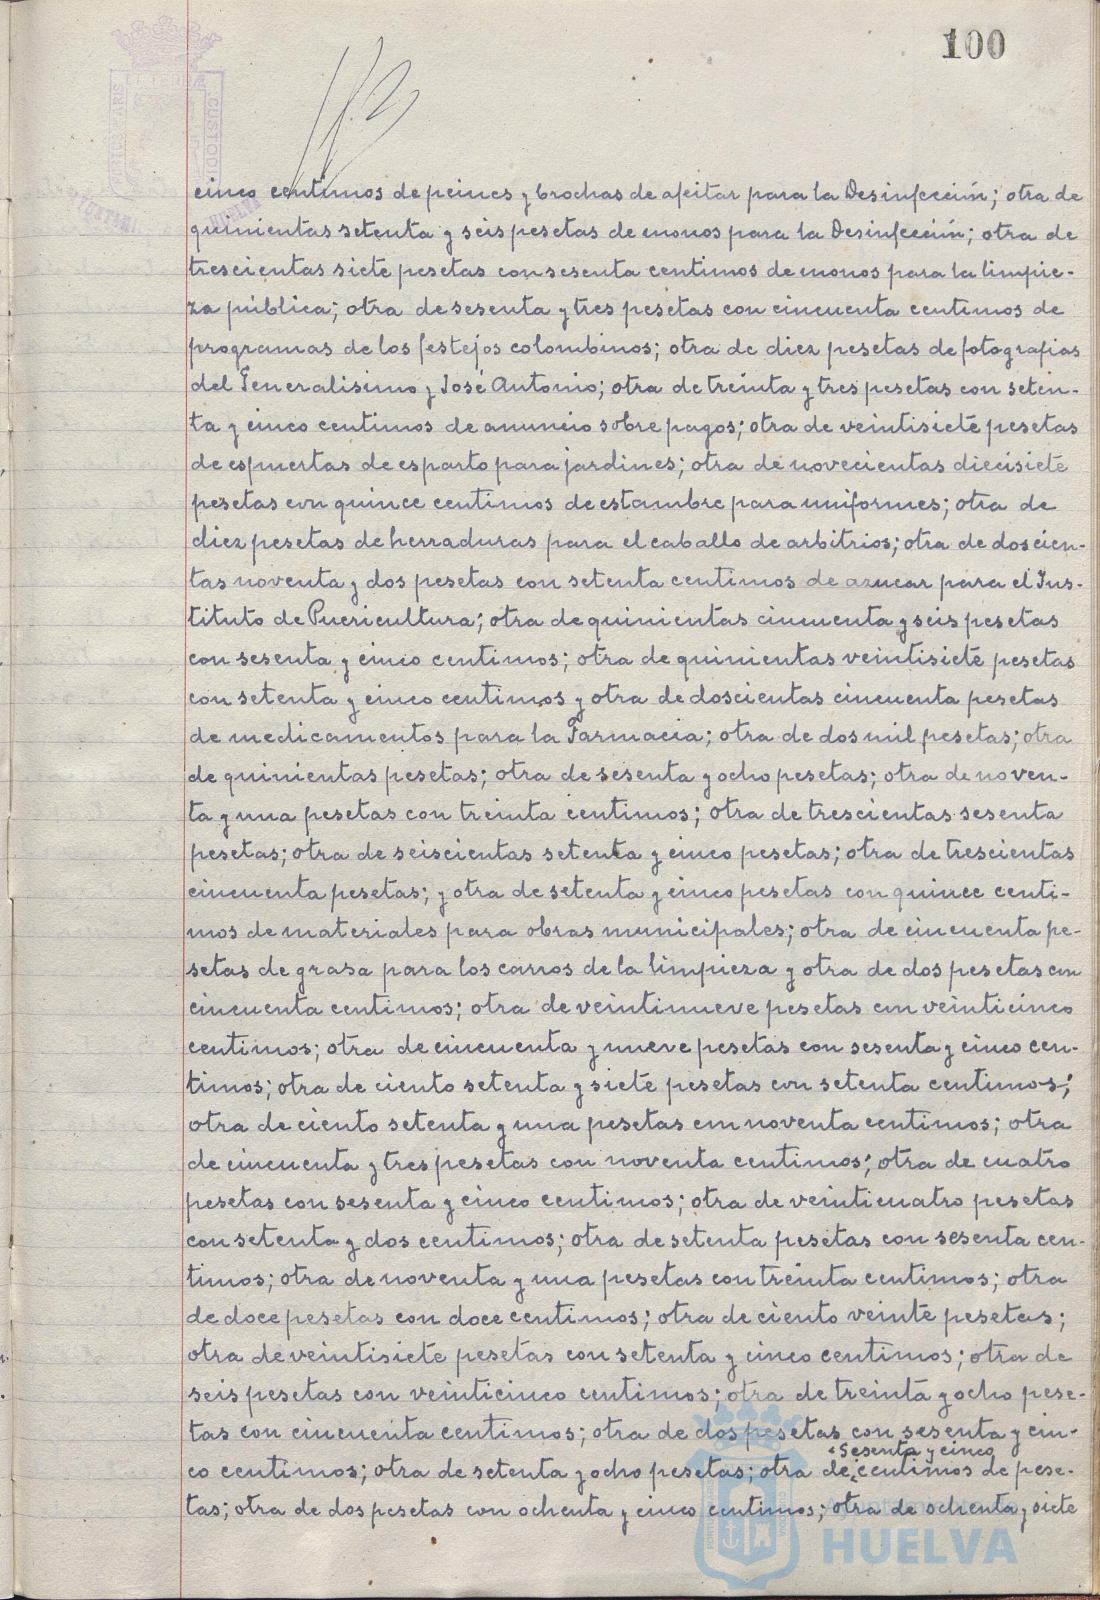 100
PORTUS MARIS ET TERRÆ CUSTODIA
cinco centimos de peines y brochas de afeitar para la Desinfección; otra de
quinientas setenta y seis pesetas de monos para la Desinfección; otra de
trescientas siete pesetas con sesenta centimos de monos para la limpie-
za pública; otra de sesenta y tres pesetas con cincuenta centimos de
programas de los festejos colombinos; otra de diez pesetas de fotografias
del Generalisimo y José Antonio; otra de treinta y tres pesetas con seten-
ta y cinco centimos de anuncio sobre pagos; otra de veintisiete pesetas
de espuertas de esparto para jardines; otra de novecientas diecisiete
pesetas con quince centimos de estambre para uniformes; otra de
diez pesetas de herraduras para el caballo de arbitrios; otra de doscien-
tas noventa y dos pesetas con setenta centimos de azucar para el Ins-
tituto de Puericultura; otra de quinientas cincuenta y seis pesetas
con sesenta y cinco centimos; otra de quinientas veintisiete pesetas
con setenta y cinco centimos y otra de doscientas cincuenta pesetas
de medicamentos para la Farmacia; otra de dos mil pesetas; otra
de quinientas pesetas; otra de sesenta y ocho pesetas; otra de noven-
ta y una pesetas con treinta centimos; otra de trescientas sesenta
pesetas; otra de seiscientas setenta y cinco pesetas; otra de trescientas
cincuenta pesetas; y otra de setenta y cinco pesetas con quince centi-
mos de materiales para obras municipales; otra de cincuenta pe-
setas de grasa para los carros de la limpieza y otra de dos pesetas con
cincuenta centimos; otra de veintinueve pesetas con veinticinco
centimos; otra de cincuenta y nueve pesetas con sesenta y cinco cen-
timos; otra de ciento setenta y siete pesetas con setenta centimos;
otra de ciento setenta y una pesetas con noventa centimos; otra
de cincuenta y tres pesetas con noventa centimos; otra de cuatro
pesetas con sesenta y cinco centimos; otra de veinticuatro pesetas
con setenta y dos centimos; otra de setenta pesetas con sesenta cen-
timos; otra de noventa y una pesetas con treinta centimos; otra
de doce pesetas con doce centimos; otra de ciento veinte pesetas;
otra de veintisiete pesetas con setenta y cinco centimos; otra de
seis pesetas con veinticinco centimos; otra de treinta y ocho pese-
tas con cincuenta centimos; otra de dos pesetas con sesenta y cin-
Sesenta y cinco
co centimos; otra de setenta y ocho pesetas; otra de centimos de pese-
tas; otra de dos pesetas con ochenta y cinco centimos; otra de ochenta y siete
Ayuntamiento de
HUELVA